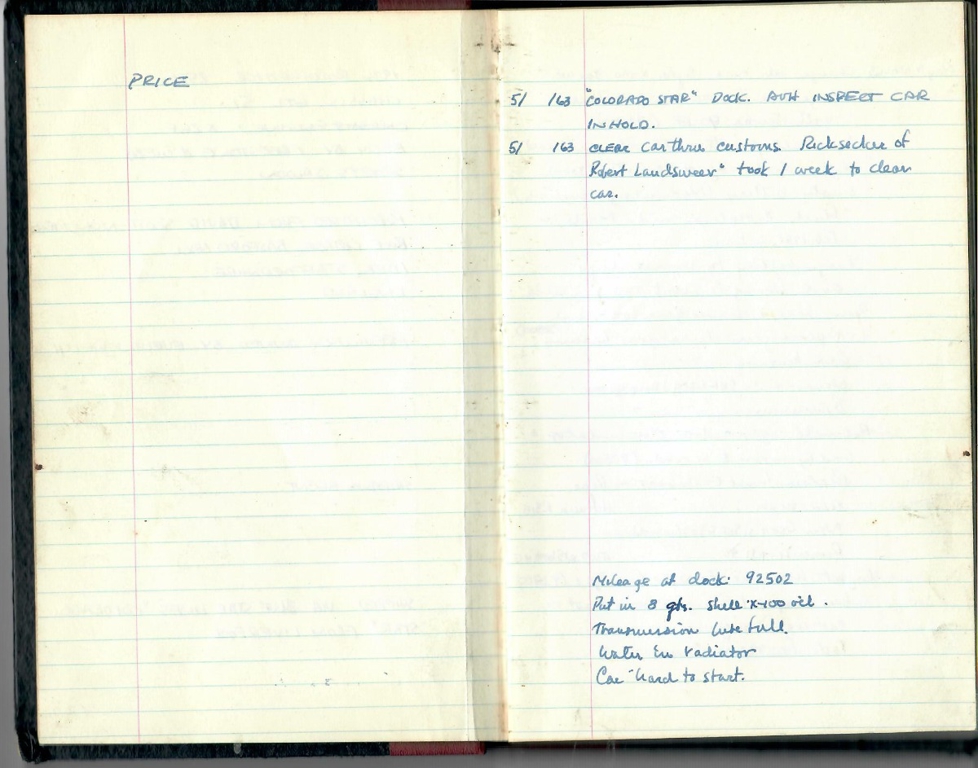 PRICE
5/ /63 "COLORADO STAR" DOCK. INSPECT CAR
IN HOLD.
5/ /63 CLEAR car thru customs. of
Robert Landsweer" took 1 week to clear
car.
Mileage at dock: 92502
Put in 8 qts. Shell X-100 oil.
Transmission lube full.
Water in radiator
Car "hard to start.